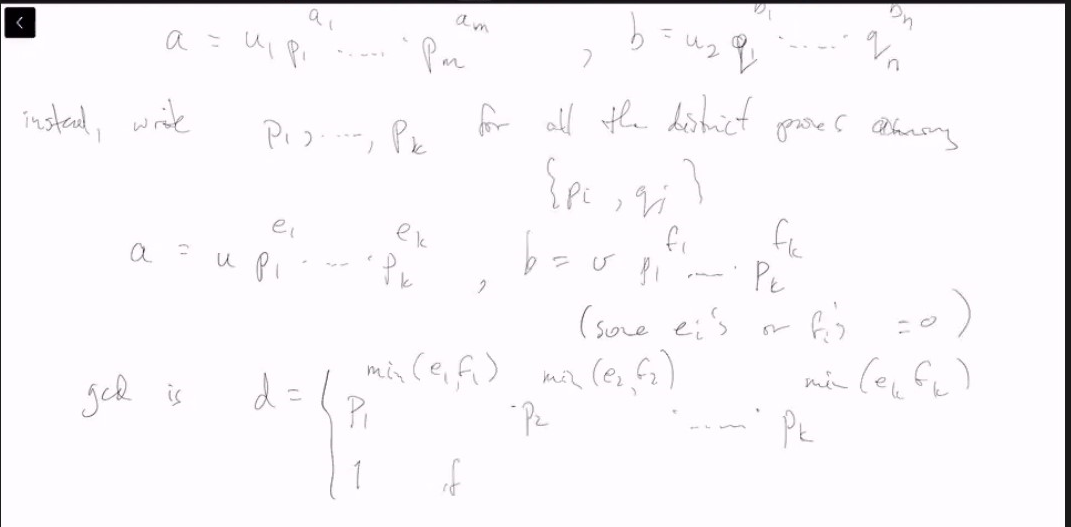 a = u₁ p₁^a₁ ..... · pₘ^aₘ , b = u₂ q₁^b₁ ..... · qₙ^bₙ
instead, write p₁, ...., pₖ for all the distinct primes among
{pᵢ, qⱼ}
a = u p₁^e₁ · ... · pₖ^eₖ , b = v p₁^f₁ ..... pₖ^fₖ
(some eᵢ's or fᵢ's = 0)
gcd is d = { p₁^min(e₁,f₁) · p₂^min(e₂,f₂) · ..... · pₖ^min(eₖ fₖ)
1 if